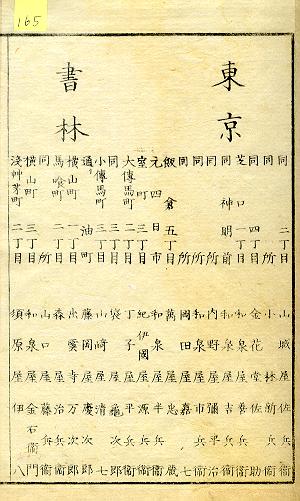 165
東京
書林
同 二丁目 山城屋佐兵衛
同 所 小林新兵衛
同 四丁目 金花堂佐助
芝口一丁目 和泉屋善兵衛
同神明前 和泉屋吉兵衛
同 所 内野屋彌平治
同 所 和泉屋市兵衛
同 所 岡田屋嘉七
飯倉五丁目 萬屋忠蔵
元四日市 和泉屋半兵衛
室町三丁目 紀伊國屋源兵衛
大傳馬町二丁目 丁子屋平兵衛
同 三丁目 袋屋亀次郎
小傳馬町三丁目 山崎屋清七
通油町 藤岡屋慶次郎
横山町二丁目 出雲寺万次郎
馬喰町二丁目 森屋治兵衛
同 所 山口屋藤兵衛
横山町三丁目 和泉屋金右衛門
淺艸茅町二丁目 須原屋伊八